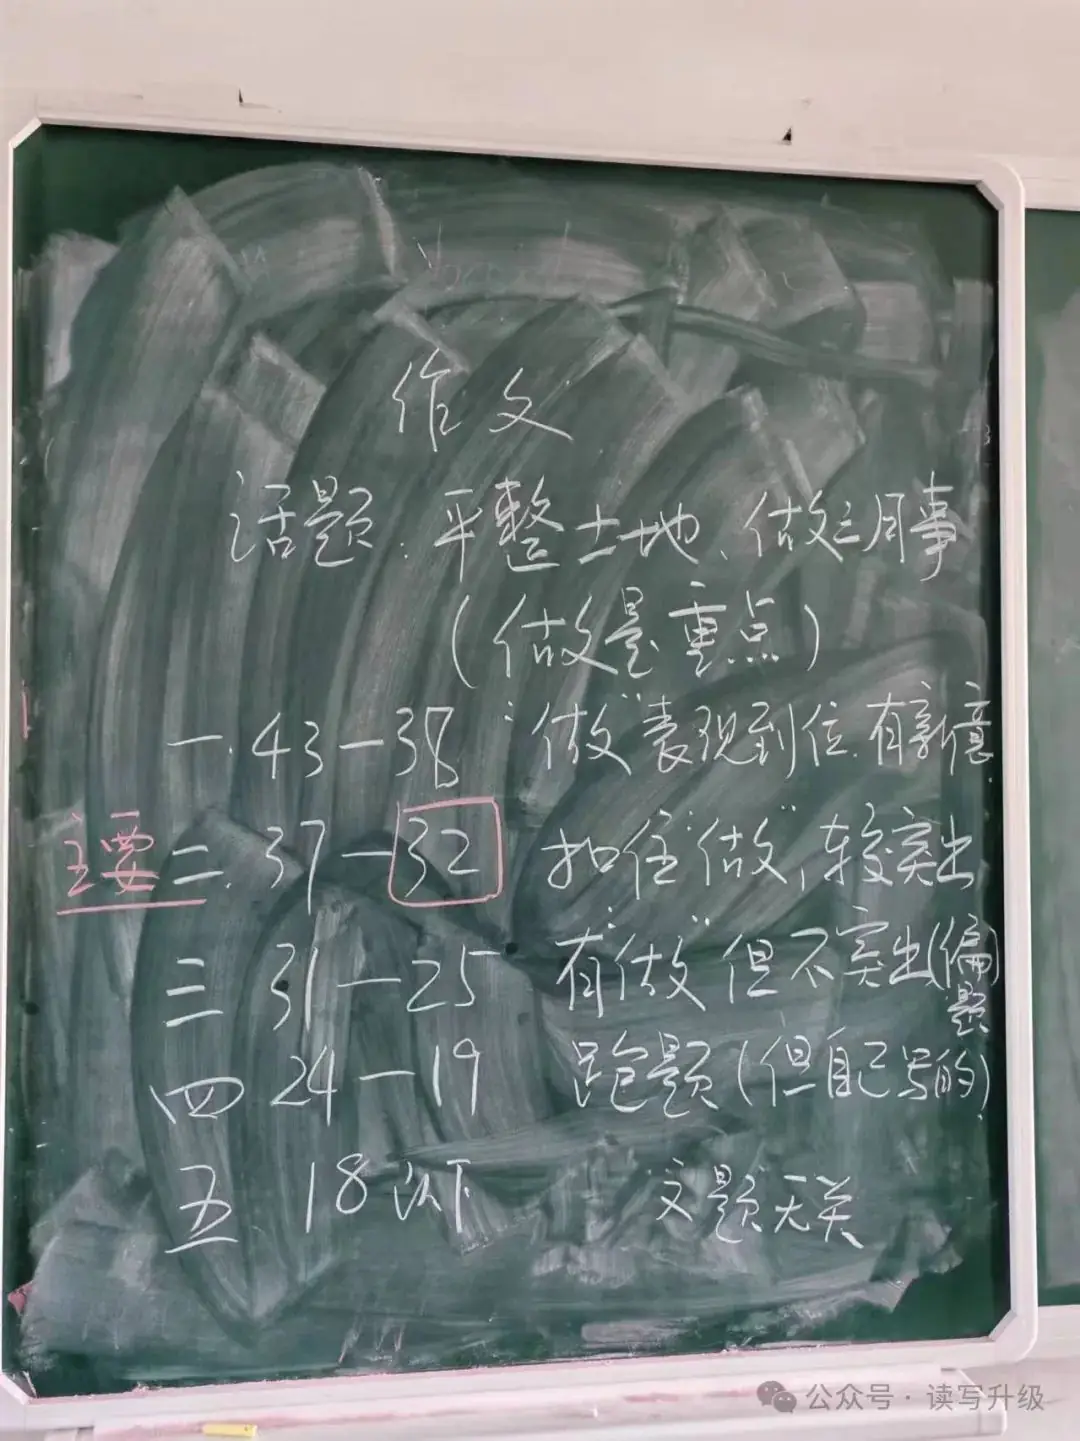 作文
话题：平整土地、做三月事
（做是重点）
一.43—38 "做"表现到位.有新意.
主要二.37—32 扣住"做",较突出
三 31—25 有"做"但不突出(偏题)
四 24—19 跑题(但自己写的)
五 18以下 文题无关
公众号·读写升级